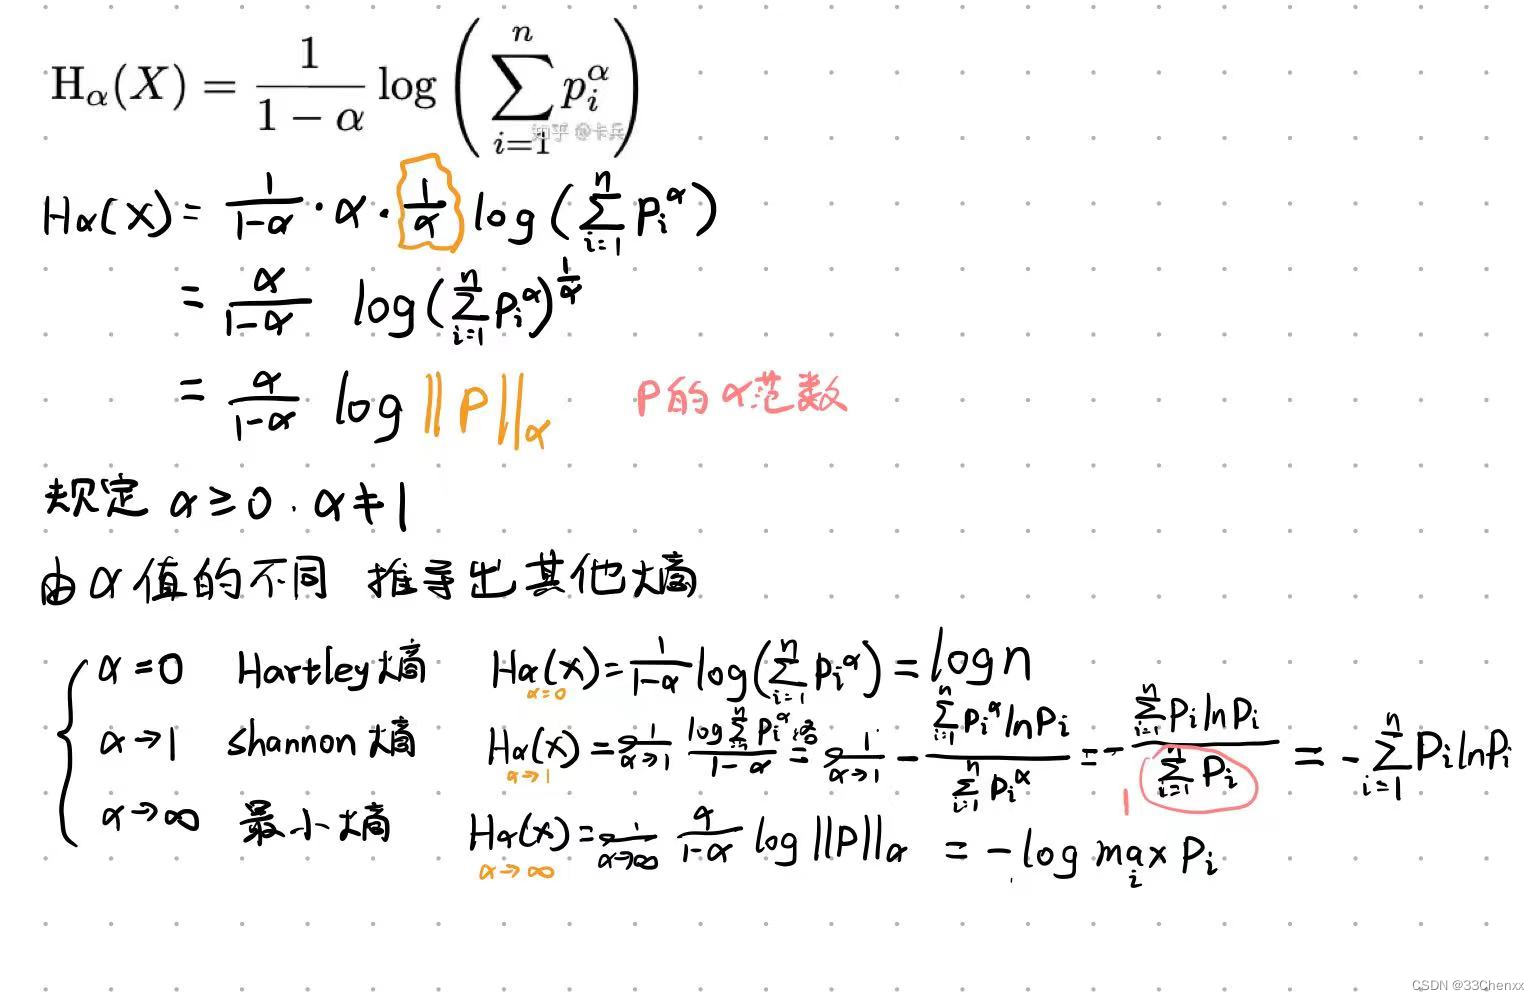 H_α(X) = \frac{1}{1-α} log ( \sum_{i=1}^{n} p_i^α )
知乎 @卡兵
H_α(X) = \frac{1}{1-α} · α · \frac{1}{α} log ( \sum_{i=1}^{n} p_i^α )
= \frac{α}{1-α} log ( \sum_{i=1}^{n} p_i^α )^{\frac{1}{α}}
= \frac{α}{1-α} log ||P||_α P的α范数
规定 α ≥ 0 . α ≠ 1
由α值的不同 推导出其他熵
α = 0 Hartley熵 H_α(X) = \frac{1}{1-α} log ( \sum_{i=1}^{n} p_i^α ) = log n
α=0
α→1 shannon熵 H_α(X) = \lim_{α→1} \frac{log \sum_{i=1}^{n} p_i^α}{1-α} 洛= \lim_{α→1} - \frac{\sum_{i=1}^{n} p_i^α ln p_i}{\sum_{i=1}^{n} p_i^α} = - \frac{\sum_{i=1}^{n} p_i ln p_i}{\sum_{i=1}^{n} p_i} = - \sum_{i=1}^{n} p_i ln p_i
α→1 1
α→∞ 最小熵 H_α(X) = \lim_{α→∞} \frac{α}{1-α} log ||P||_α = - log \max_i p_i
α→∞
CSDN @33Chenxx